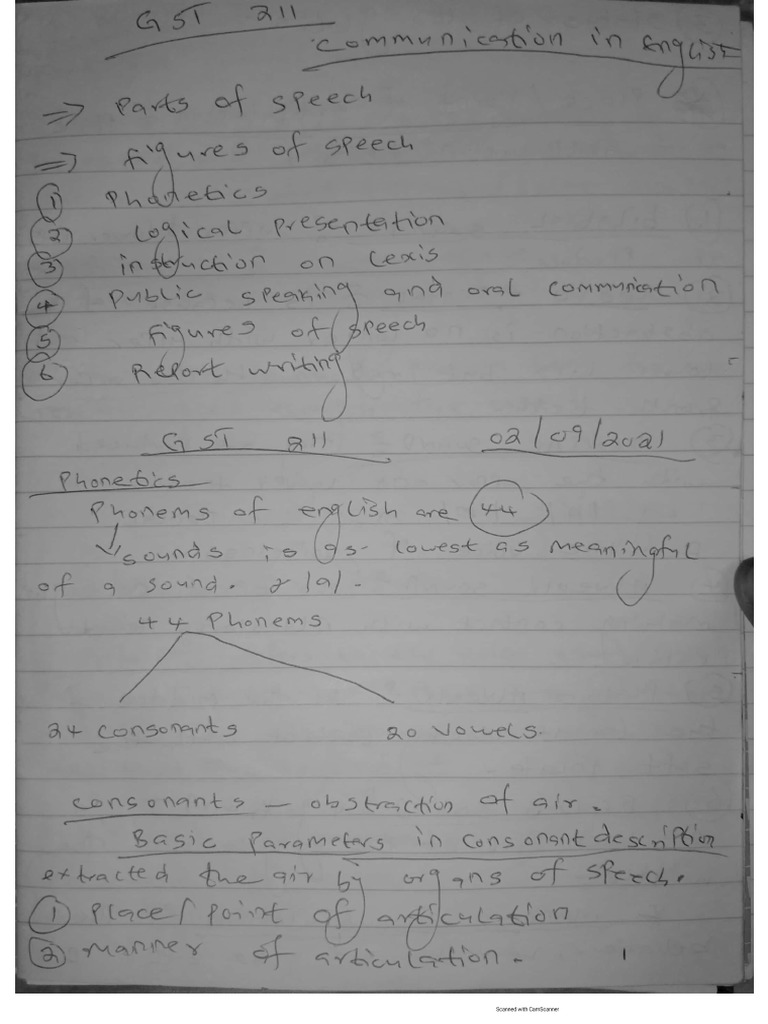 GST 211
Communication in English
⇒ Parts of speech
⇒ Figures of speech
① Phonetics
② Logical Presentation
③ instruction on Lexis
④ Public speaking and oral communication
⑤ Figures of speech
⑥ Report writing
GST 211 02/09/2021
Phonetics
Phonems of english are 44
sounds is as lowest as meaningful
of a sound. /a/.
44 Phonems
24 consonants 20 Vowels.
consonants – obstraction of air.
Basic Parameters in consonant description
extracted the air by organs of speech.
① Place/point of articulation
② manner of articulation.
1
Scanned with CamScanner